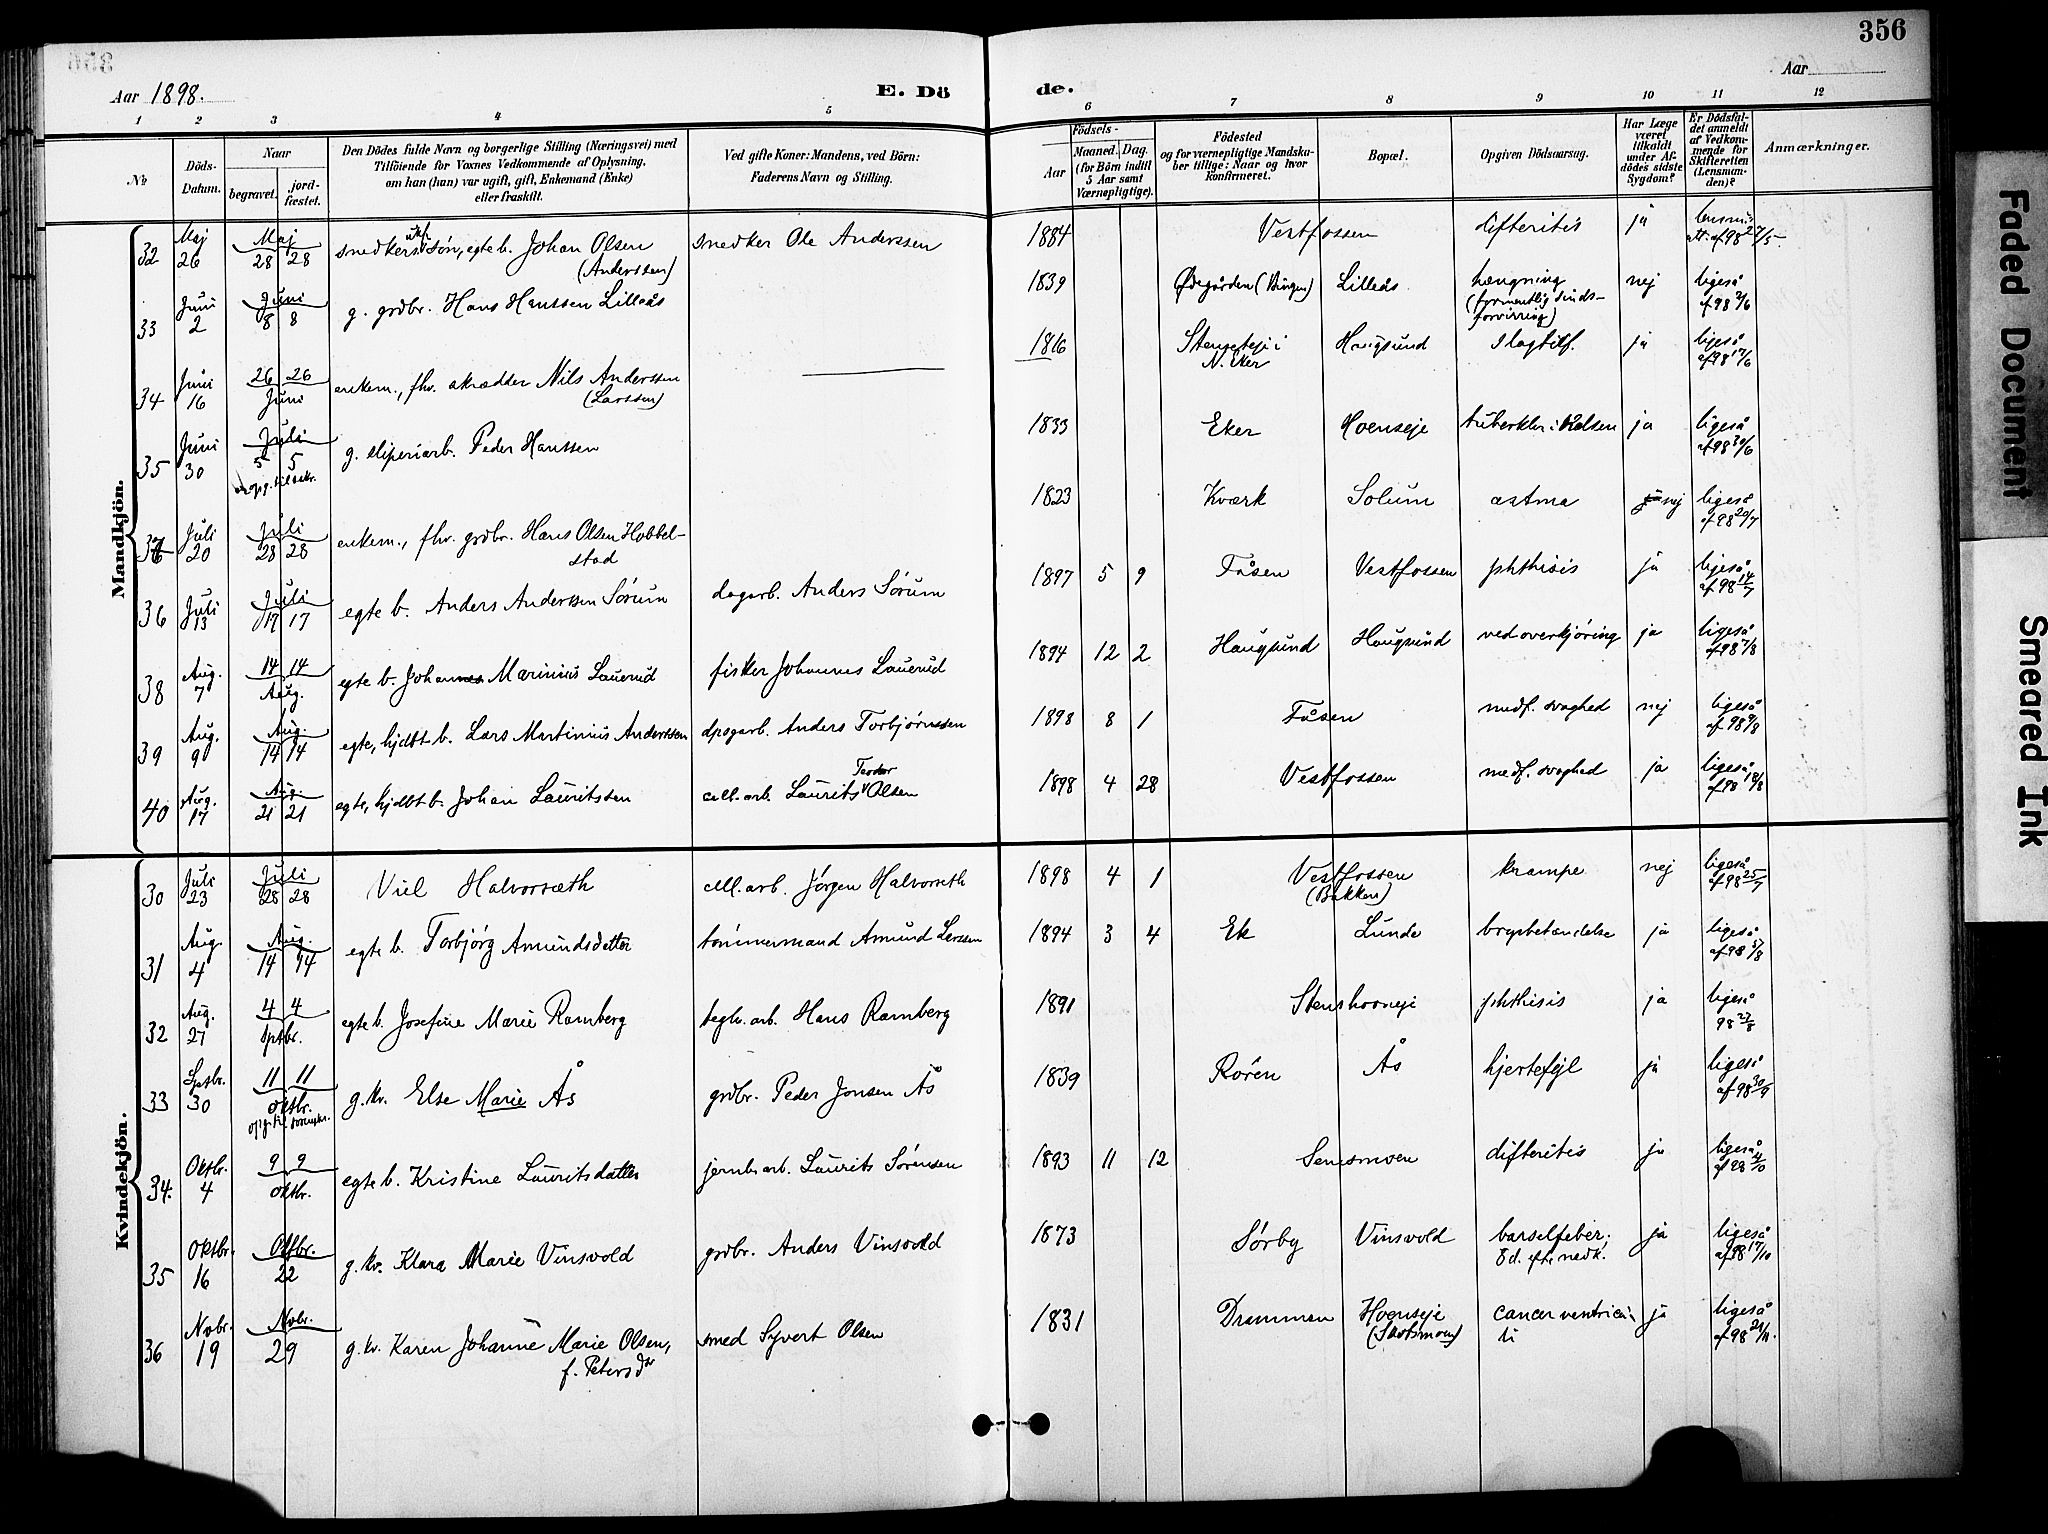 356
Aar 1898.
E. Dö de.
Aar
1 2 3 4 5 6 7 8 9 10 11 12
Nr
Döds-Datum.
Naar
begravet.
jord-fæstet.
Den Dödes fulde Navn og borgerlige Stilling (Næringsvei) med
Tilföiende for Voxnes Vedkommende af Oplysning,
om han (hun) var ugift, gift, Enkemand (Enke)
eller fraskilt.
Ved gifte Koner: Mandens, ved Börn:
Faderens Navn og Stilling.
Födsels-
Aar
Maaned. Dag.
(for Börn indtil
5 Aar samt
Værnepligtige).
Födested
og for værnepligtige Mandska-
ber tillige: Naar og hvor
Konfirmeret.
Bopæl.
Opgiven Dödsaarsag.
Har Læge
været
tilkaldt
under Af-
dödes sidste
Sygdom?
Er Dödsfal-
det anmeldt
af Vedkom-
mende for
Skifteretten
(Lensman-
den)?
Anmærkninger.
Mandkjön.
32 Maj 26 Maj 28 28 snedkers søn, egte b. Johan Olsen (Anderssen) snedker Ole Anderssen 1884 Vestfossen difteritis ja lensm.s att. af 98 27/5
33 Juni 2 Juni 8 8 g. grdbr. Hans Hanssen Lilleås 1839 Ødegården (Bingen) Lilleås hængning (formentlig sinds-forvirring) nej ligeså af 98 2/6
34 Juni 16 26 26 Juni enkem., fhv. skrædder Nils Anderssen (Larssen) 1816 Stenseteje i N. Eker Haugsund slagtilf. ja ligeså af 98 17/6
35 Juni 30 Juli 5 5 g. sliperiarb. Peder Hanssen 1833 Eker Hoenseje tuberkler i halsen ja ligeså af 98 30/6
37 Juli 20 Juli 28 28 enkem., fhv. grdbr. Hans Olsen Hobbel-stad 1823 Kværk Solum astma nej ligeså af 98 20/7
36 Juli 13 Juli 17 17 egte b. Anders Anderssen Sørum dagarb. Anders Sørum 1897 5 9 Fåsen Vestfossen phthisis ja ligeså af 98 14/7
38 Aug. 7 14 14 Aug. egte b. Johannes Marinius Lauerud fisker Johannes Lauerud 1894 12 2 Haugsund Haugsund ved overkjøring ja ligeså af 98 7/8
39 Aug. 9 Aug. 14 14 egte, hjdbt b. Lars Martinius Anderssen dagarb. Anders Torbjørnssen 1898 8 1 Fåsen medf. svaghed nej ligeså af 98 9/8
40 Aug. 17 Aug. 21 21 egte, hjdbt b. Johan Lauritssen cell.arb. Laurits Teodor Olsen 1898 4 28 Vestfossen medf. svaghed ja ligeså af 98 18/8
Kvindekjön.
30 Juli 23 Juli 28 28 Viel Halvorsæth cell.arb. Jørgen Halvorseth 1898 4 1 Vestfossen (Bakken) krampe nej ligeså af 98 25/7
31 Aug. 4 Aug. 14 14 egte b. Torbjørg Amundsdatter tømmermand Amund Larssen 1894 3 4 Ek Lunde brystbetændelse ja ligeså af 98
32 Aug. 27 4 4 Sptbr. egte b. Josefine Marie Ramberg teglv.arb. Hans Ramberg 1891 Stenshorneje phthisis ja ligeså 98 27/8
33 Sptbr. 30 11 11 oktbr. g. kv. Else Marie Ås grdbr. Peder Jonsen Ås 1839 Røren Ås hjertefejl ja ligeså af 98 30/9
34. Oktbr. 4 9 9 oktbr. egte b. Kristine Lauritsdatter jernb.arb. Laurits Sørensen 1893 11 12 Semsmoen difteritis ja ligeså af 98 4/10
35 Oktbr. 16 Oktbr. 22 g. kv. Klara Marie Vinsvold grdbr. Anders Vinsvold 1873 Sørby Vinsvold barselfeber; 8 d. efter nedk. ja ligeså af 98 17/10
36 Nvbr. 19 Nvbr. 29 g. kv. Karen Johanne Marie Olsen, f. Petersdtr smed Syvert Olsen 1831 Drammen Hoenseje (Skotsmoen) cancer ventricu-li ja ligeså af 98 21/11.
Faded Document
Smeared Ink